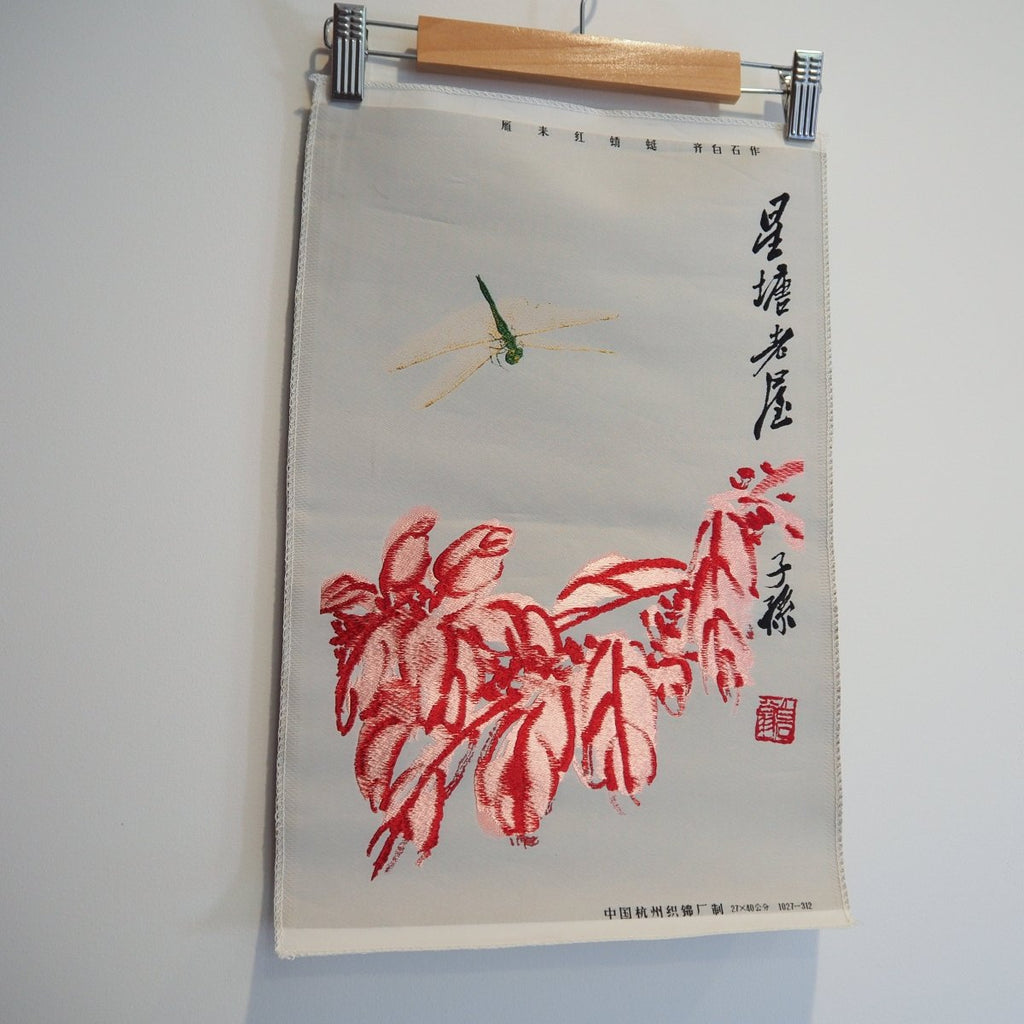 雁来红蜻蜓 齐白石作
星塘老屋
子孫
中国杭州织锦厂制 27×40公分 1027-312